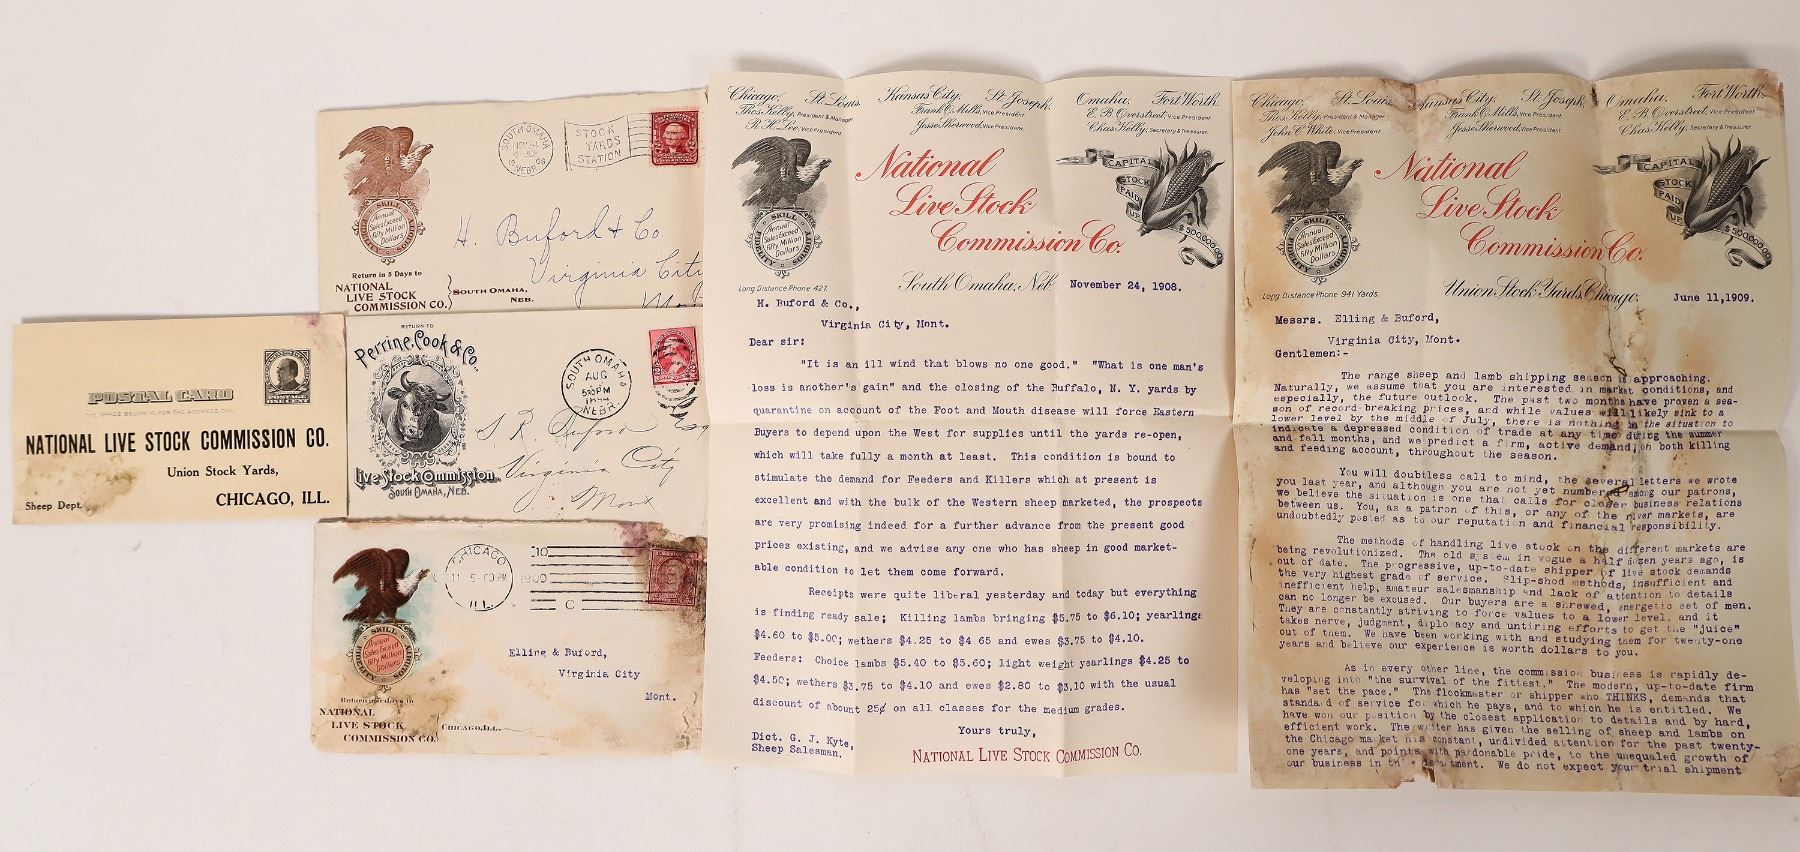 POSTAL CARD
THE SPACE BELOW IS FOR THE ADDRESS ONLY
POSTAGE ONE CENT
NATIONAL LIVE STOCK COMMISSION CO.
Union Stock Yards,
Sheep Dept.
CHICAGO, ILL.
SOUTH OMAHA
NOV 24
1908
NEBR.
STOCK
YARDS
STATION
SKILL
FIDELITY
SOLIDITY
Annual
Sales Exceed
Fifty Million
Dollars
H. Buford & Co.
Virginia City
Return in 5 Days to
NATIONAL
LIVE STOCK
COMMISSION CO.
SOUTH OMAHA,
NEB.
RETURN TO
Perrine, Cook & Co.
Live Stock Commission.
SOUTH OMAHA, NEB.
SOUTH OMAHA
AUG
5 30 PM
NEBR.
S. R. Buford Esq
Virginia City
Mont
CHICAGO
11 5-00 PM
1909
ILL.
10
C
SKILL
FIDELITY
SOLIDITY
Annual
Sales Exceed
Fifty Million
Dollars
Elling & Buford,
Virginia City
Mont.
Return in 5 days to
NATIONAL
LIVE STOCK
COMMISSION CO.
CHICAGO, ILL.
Chicago. St. Louis. Kansas City. St. Joseph. Omaha. Fort Worth.
Thos. Kelly, President & Manager Frank E. Mills, Vice President E. B. Overstreet, Vice President
R. H. Lee, Vice President. Jesse Sherwood, Vice President. Chas. Kelly, Secretary & Treasurer.
National
Live Stock
Commission Co.
SKILL
FIDELITY
SOLIDITY
Annual
Sales Exceed
Fifty Million
Dollars
CAPITAL
STOCK
PAID
UP
$500,000.00
Long Distance Phone 427.
South Omaha, Neb. November 24, 1908.
H. Buford & Co.,
Virginia City, Mont.
Dear sir:
"It is an ill wind that blows no one good." "What is one man's
loss is another's gain" and the closing of the Buffalo, N. Y. yards by
quarantine on account of the Foot and Mouth disease will force Eastern
Buyers to depend upon the West for supplies until the yards re-open,
which will take fully a month at least. This condition is bound to
stimulate the demand for Feeders and Killers which at present is
excellent and with the bulk of the Western sheep marketed, the prospects
are very promising indeed for a further advance from the present good
prices existing, and we advise any one who has sheep in good market-
able condition to let them come forward.
Receipts were quite liberal yesterday and today but everything
is finding ready sale; Killing lambs bringing $5.75 to $6.10; yearlings
$4.60 to $5.00; wethers $4.25 to $4 65 and ewes $3.75 to $4.10.
Feeders: Choice lambs $5.40 to $5.60; light weight yearlings $4.25 to
$4.50; wethers $3.75 to $4.10 and ewes $2.80 to $3.10 with the usual
discount of abount 25¢ on all classes for the medium grades.
Yours truly,
Dict. G. J. Kyte,
Sheep Salesman.
NATIONAL LIVE STOCK COMMISSION CO.
Chicago. St. Louis. Kansas City. St. Joseph. Omaha. Fort Worth.
Thos. Kelly, President & Manager Frank E. Mills, Vice President E. B. Overstreet, Vice President
John C. White, Vice President Jesse Sherwood, Vice President Chas. Kelly, Secretary & Treasurer.
National
Live Stock
Commission Co.
SKILL
FIDELITY
SOLIDITY
Annual
Sales Exceed
Fifty Million
Dollars
CAPITAL
STOCK
PAID
UP
$500,000.00
Long Distance Phone 941 Yards.
Union Stock Yards, Chicago, June 11, 1909.
Messrs. Elling & Buford,
Virginia City, Mont.
Gentlemen:-
The range sheep and lamb shipping season is approaching.
Naturally, we assume that you are interested in market conditions, and
especially, the future outlook. The past two months have proven a sea-
son of record-breaking prices, and while values will likely sink to a
lower level by the middle of July, there is nothing in the situation to
indicate a depressed condition of trade at any time during the summer
and fall months, and we predict a firm, active demand, on both killing
and feeding account, throughout the season.
You will doubtless call to mind, the several letters we wrote
you last year, and although you are not yet numbered among our patrons,
we believe the situation is one that calls for closer business relations
between us. You, as a patron of this, or any of the river markets, are
undoubtedly posted as to our reputation and financial responsibility.
The methods of handling live stock on the different markets are
being revolutionized. The old system in vogue a half dozen years ago, is
out of date. The progressive, up-to-date shipper of live stock demands
the very highest grade of service. Slip-shod methods, insufficient and
inefficient help, amateur salesmanship and lack of attention to details
can no longer be excused. Our buyers are a shrewd, energetic set of men.
They are constantly striving to force values to a lower level, and it
takes nerve, judgment, diplomacy and untiring efforts to get the "juice"
out of them. We have been working with and studying them for twenty-one
years and believe our experience is worth dollars to you.
As in every other line, the commission business is rapidly de-
veloping into "the survival of the fittest." The modern, up-to-date firm
has "set the pace." The flockmaster or shipper who THINKS, demands that
standard of service for which he pays, and to which he is entitled. We
have won our position by the closest application to details and by hard,
efficient work. The writer has given the selling of sheep and lambs on
the Chicago market his constant, undivided attention for the past twenty-
one years, and points with pardonable pride, to the unequaled growth of
our business in this department. We do not expect your trial shipment